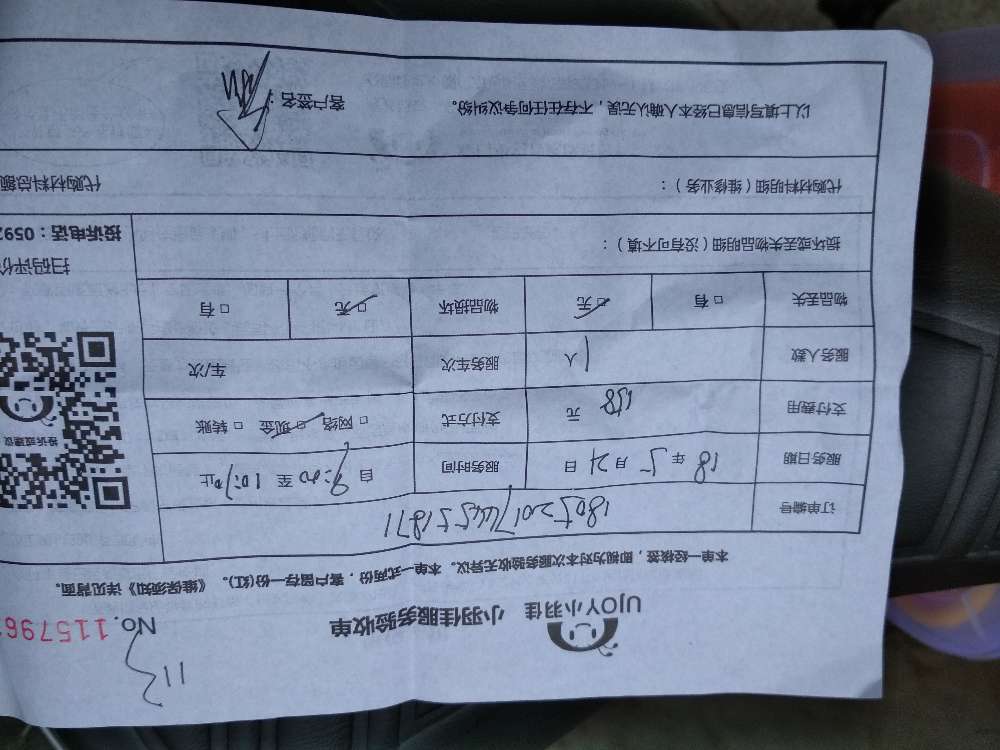 UJOY小羽佳 小羽佳服务验收单
No.115796
本单一经核签,即视为对本次服务验收无异议。本单一式两份,客户留存一份(红)。《维保须知》详见背面。
订单编号
服务日期 18年5月21日 服务时间 自9:00至 止
支付费用 158元 支付方式 □网络 □现金 □转账
服务人数 1人 服务车次 车/次
物品丢失 □有 □无 物品损坏 □无 □有
投诉或建议
扫码评价
损坏或丢失物品明细(没有可不填):
投诉电话:059
代购材料明细(维修业务):
代购材料总额
以上填写信息已经本人确认无误,不存在任何争议纠纷。 客户签名: